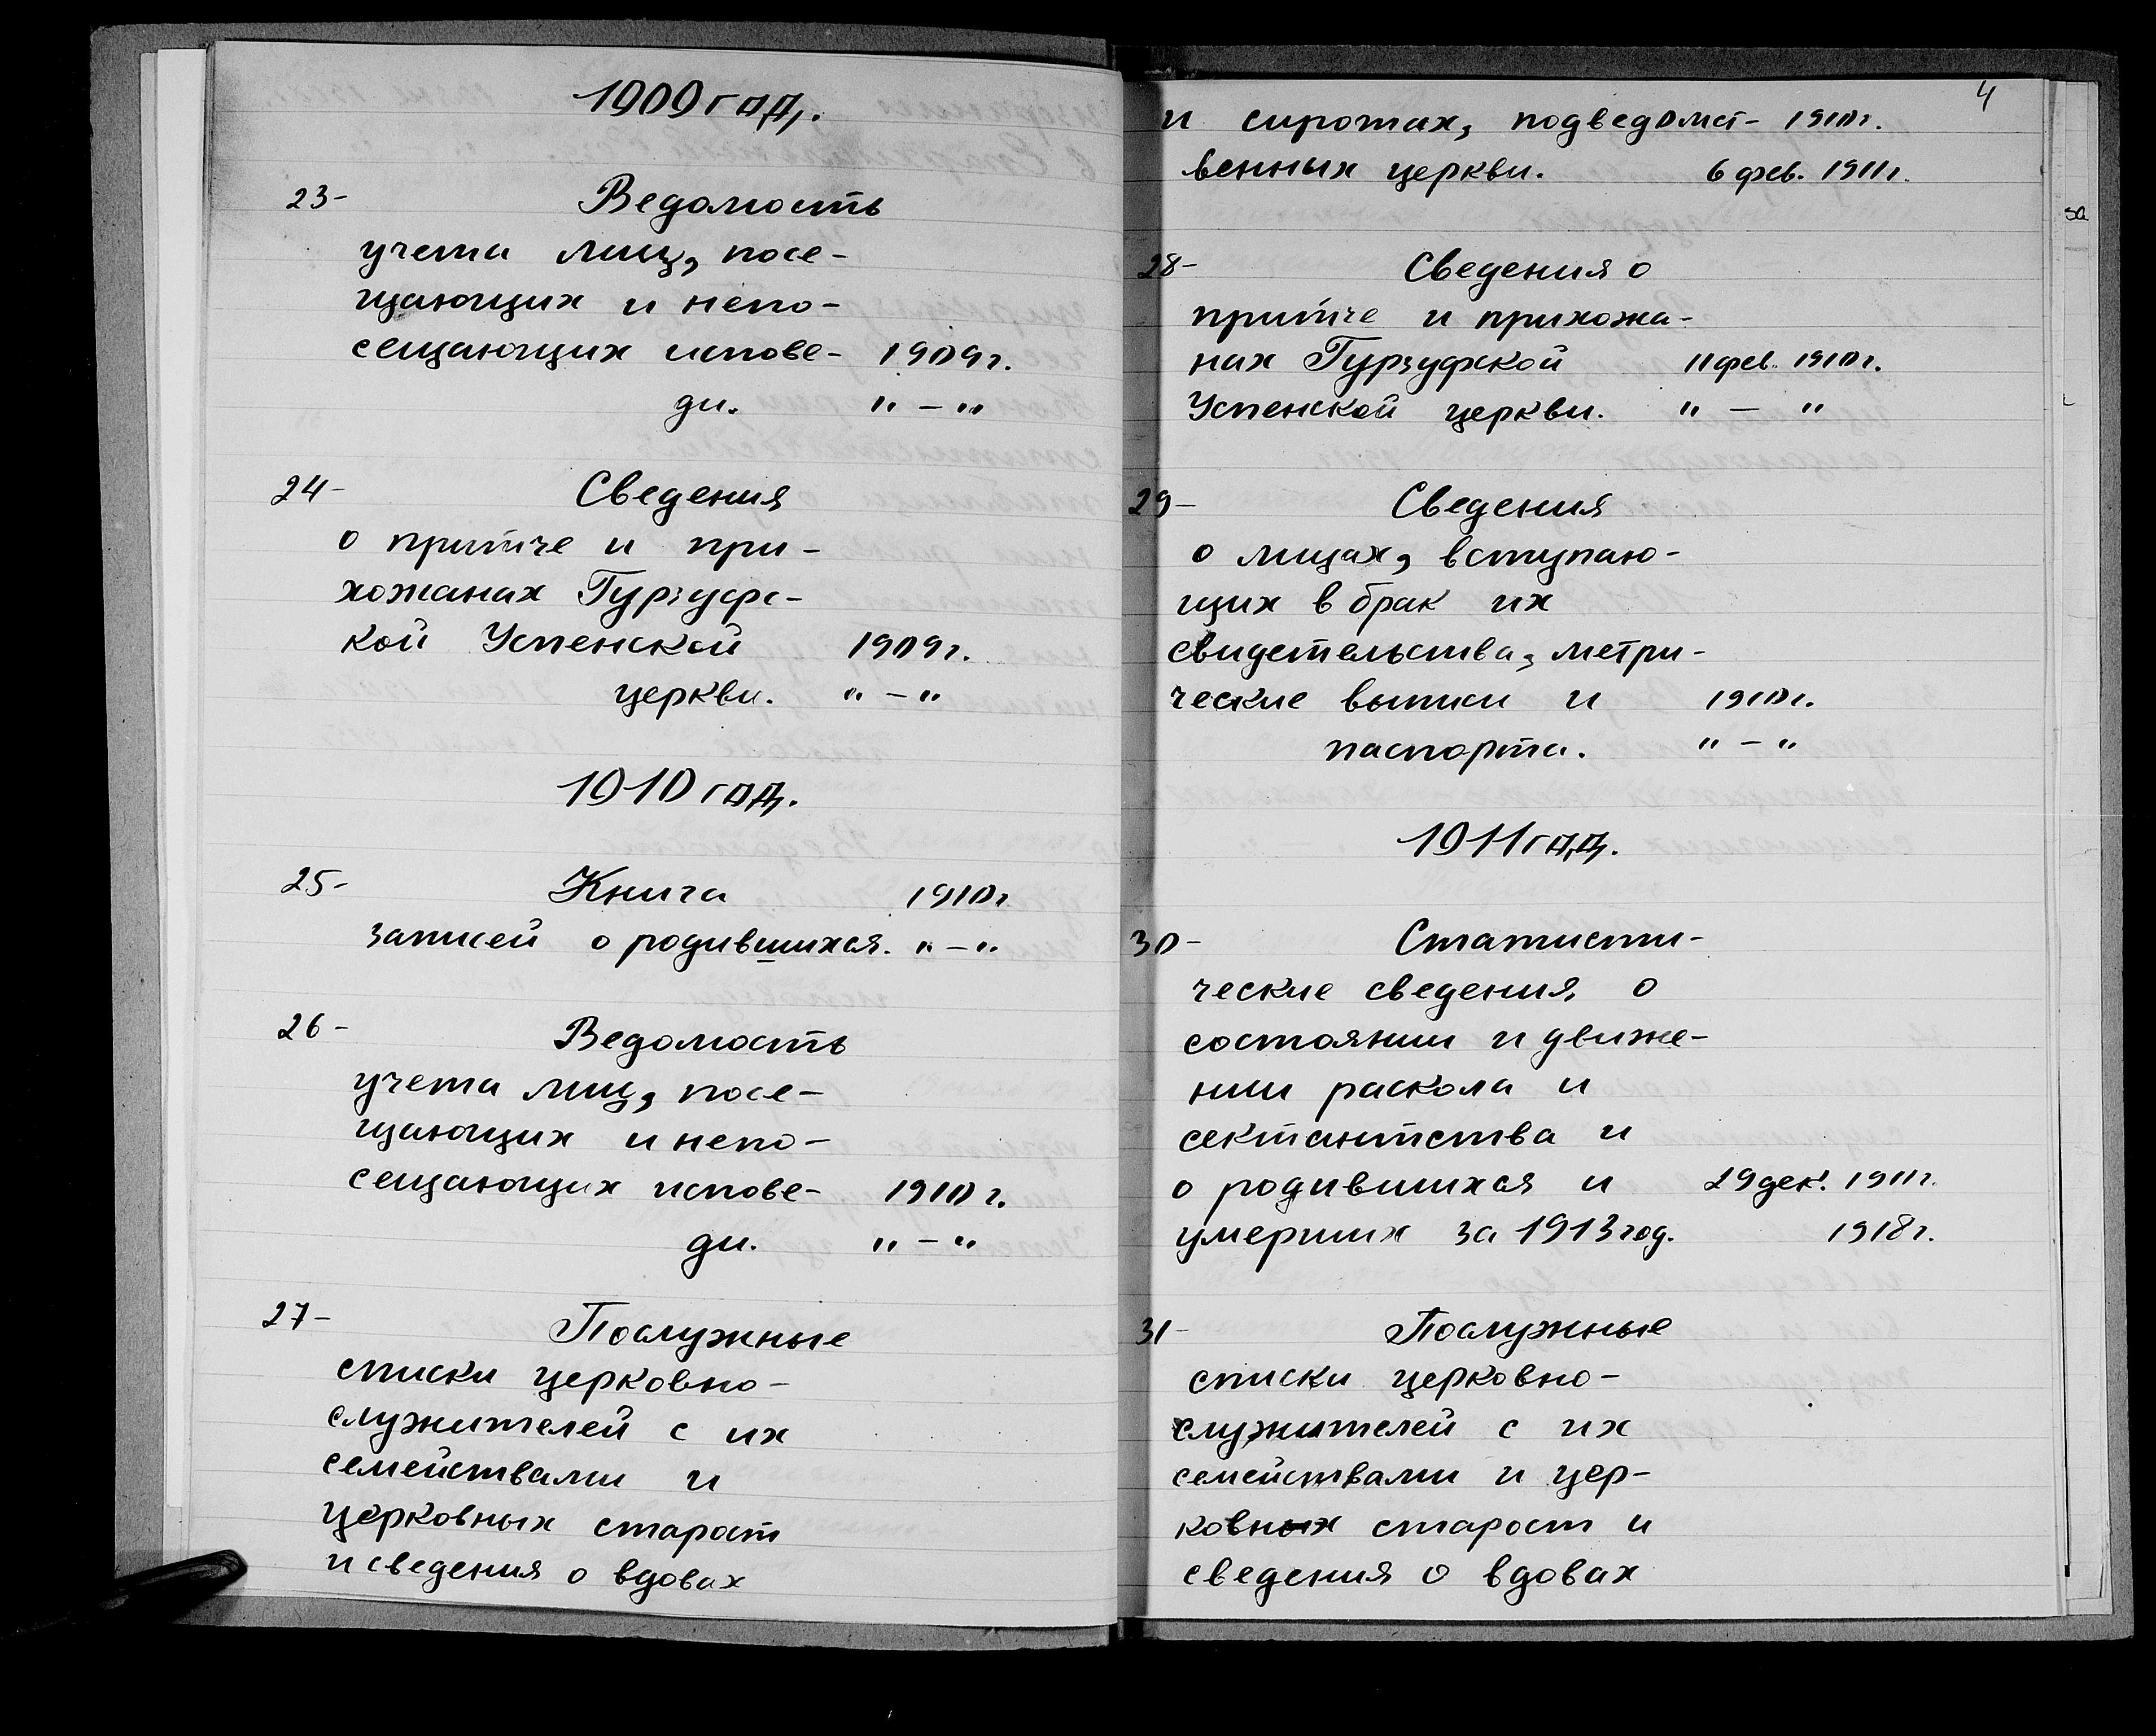 1909 год.
23- Ведомость
учета лиц, посе-
щающих и непо-
сещающих испове- 1909г.
ди. " - "
24- Сведения
о притче и при-
хожанах Гурзуфс-
кой Успенской 1909г.
церкви. " - "
1910 год.
25- Книга 1910г
записей о родившихся. " - "
26- Ведомость
учета лиц, посе-
щающих и непо-
сещающих испове- 1910г.
ди. " - "
27- Послужные
списки церковно-
служителей с их
семействами и
церковных старост
и сведения о вдовах
4
и сиротах, подведомст- 1910г.
венных церкви. 6 фев. 1911г.
28- Сведения о
притче и прихожа-
нах Гурзуфской 11 фев. 1910г.
Успенской церкви. " - "
29- Сведения
о лицах, вступаю-
щих в брак их
свидетельства, метри-
ческие выписи и 1910г.
паспорта. " - "
1911 год.
30- Статисти-
ческие сведения о
состоянии и движе-
нии раскола и
сектантства и
о родившихся и 29 дек. 1911г.
умерших за 1913 год. 1918г.
31- Послужные
списки церковно-
служителей с их
семействами и цер-
ковных старост и
сведения о вдовах